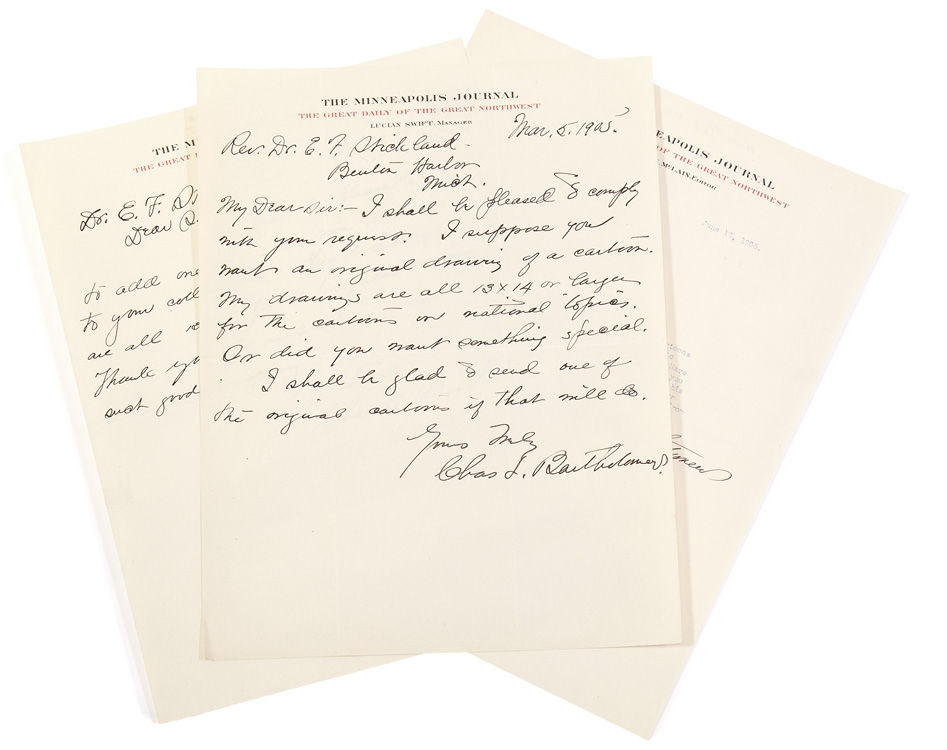 THE MINNEAPOLIS JOURNAL
THE GREAT DAILY OF THE GREAT NORTHWEST
LUCIAN SWIFT, MANAGER
Mar. 5. 1905.
Rev. Dr. E. F. Stickland.
Benton Harbor
Mich.
My Dear Sir:— I shall be pleased to comply
with your request. I suppose you
want an original drawing of a cartoon.
My drawings are all 13 x 14 or larger
for the cartoons on national topics.
Or did you want something special.
I shall be glad to send one of
the original cartoons if that will do.
Yours Truly
Chas L. Bartholomew.
THE M
THE GREAT
Dr. E. F. S
Dear S
to add one
to your coll
are all 13
Thank
such good
EAPOLIS JOURNAL
OF THE GREAT NORTHWEST
McLAIN, EDITOR
June 17, 1905.